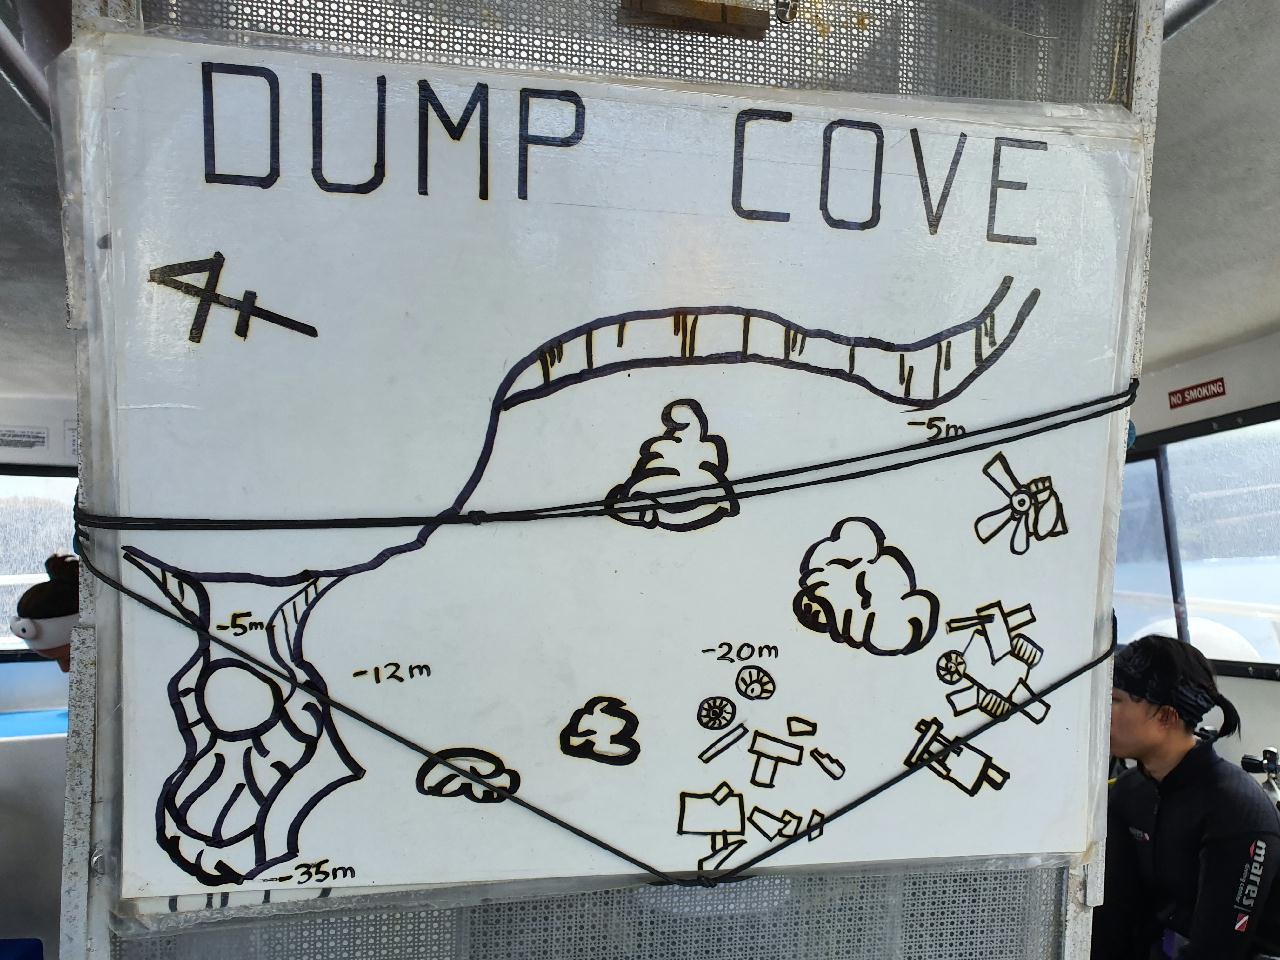 DUMP COVE
4
-5m
NO SMOKING
-5m
-12m
-20m
-35m
mares